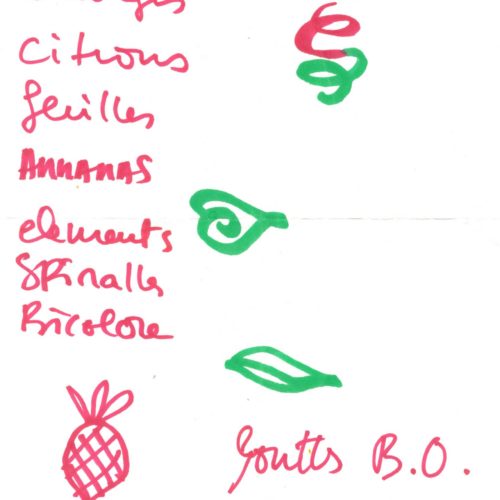 citrons
feuilles
ANNANAS
elements
SPiralls
Bicolore
Goutts B.O.